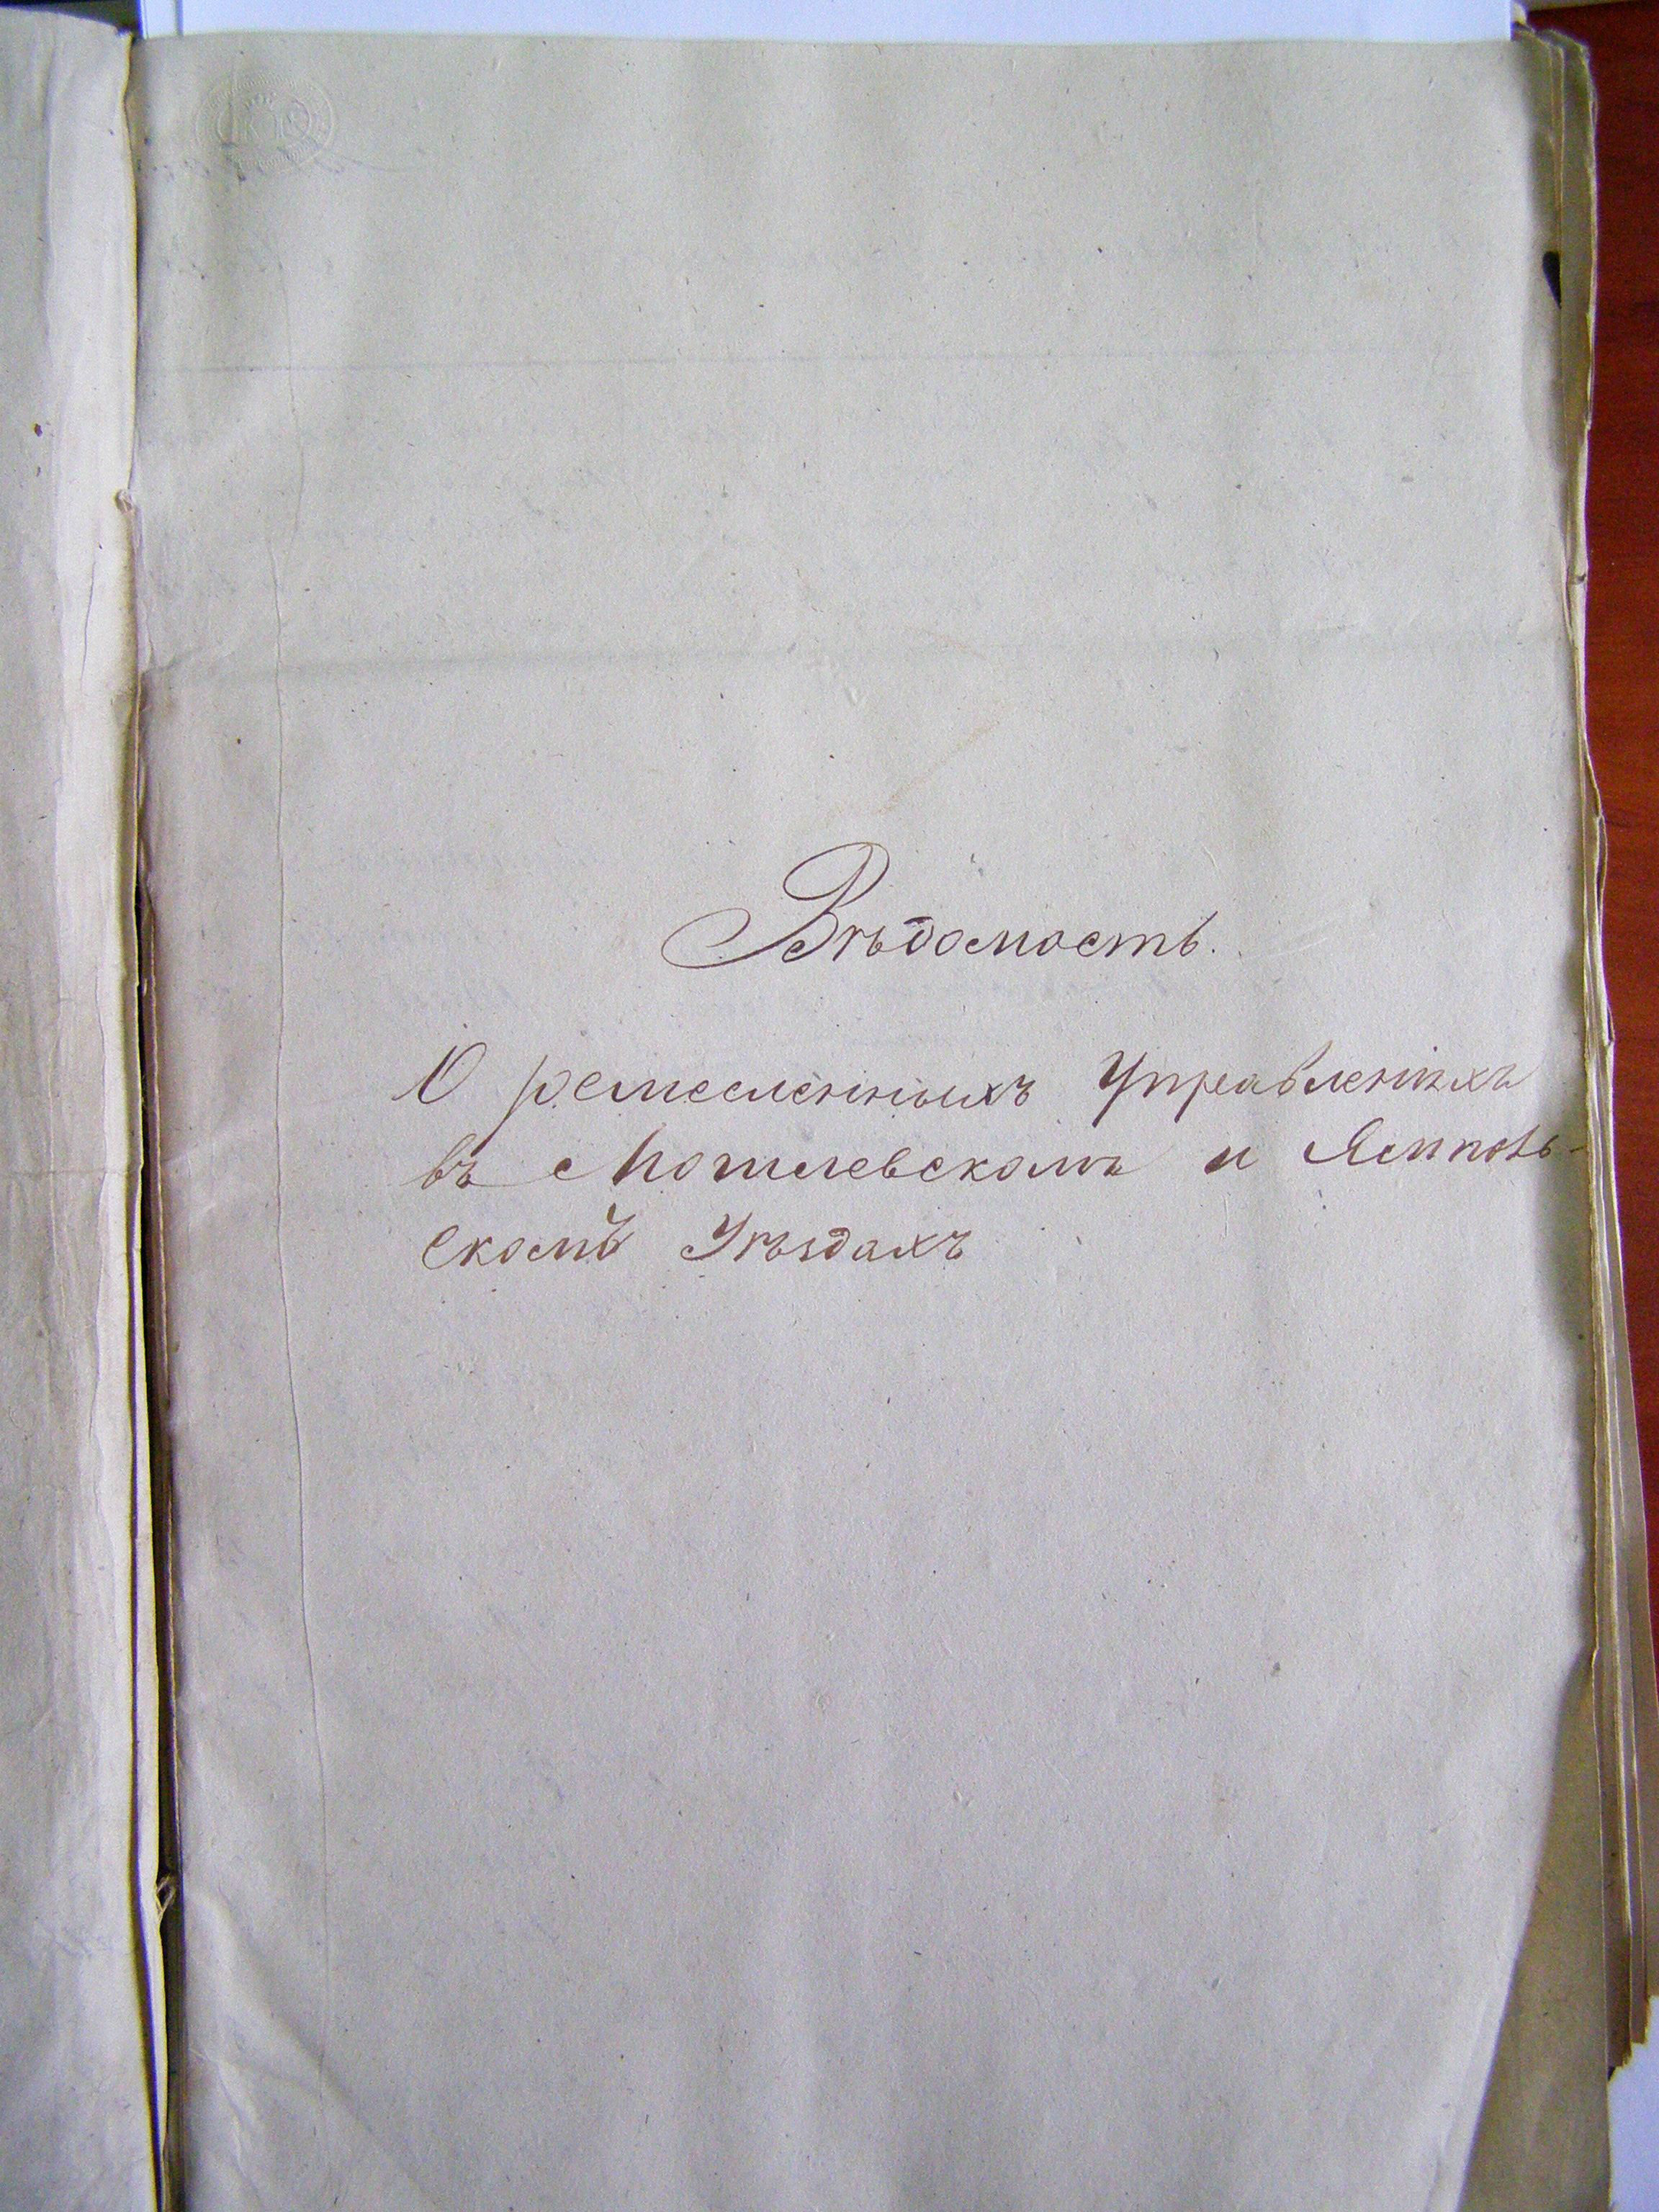 Вѣдомость.
О ремесленныхъ Управленіяхъ
въ Могилевскомъ и Ямполь-
скомъ Уѣздахъ